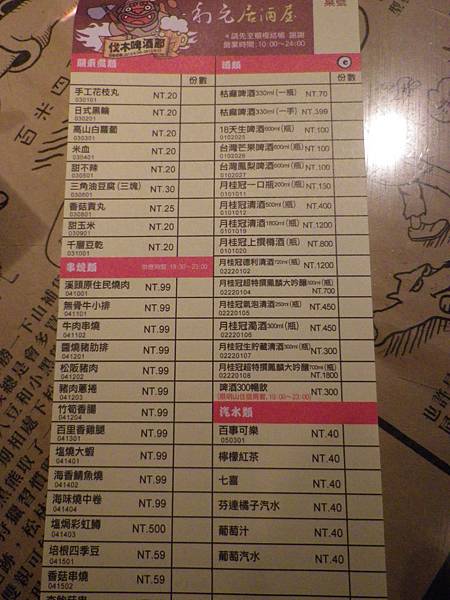 桌號
和元居酒屋
伐木啤酒節
*請先至櫃檯結帳 謝謝
營業時間:10:00~24:00
份數
手工花枝丸 NT.20
030101
日式黑輪 NT.20
030201
高山白蘿蔔 NT.20
030301
米血 NT.20
030401
甜不辣 NT.20
030501
三角油豆腐(三塊) NT.30
香菇貢丸 NT.25
030801
甜玉米 NT.20
030901
千層豆乾 NT.20
031001
串燒類
041001
溪頭原住民燒肉 NT.99
無骨牛小排 NT.99
041101
牛肉串燒 NT.99
041102
醬燒豬肋排 NT.99
041201
松阪豬肉 NT.99
041202
豬肉蔥捲 NT.99
041203
竹筍香腸 NT.99
041204
百里香雞腿 NT.99
041301
塩燒大蝦 NT.99
041401
海香鯖魚燒 NT.99
041404
海味燒中卷 NT.99
041404
塩焗彩虹鱒 NT.500
041403
培根四季豆 NT.59
041501
香菇串燒 NT.59
041502
酒類
份數
枯麻啤酒330ml(一瓶) NT.70
枯麻啤酒330ml(一手) NT.399
18天生啤酒600ml(瓶) NT.100
0102025
台灣芒果啤酒330ml(瓶) NT.100
台灣鳳梨啤酒330ml(瓶) NT.100
月桂冠一口瓶200ml(瓶) NT.150
月桂冠清酒500ml(瓶) NT.400
月桂冠清酒1800ml(瓶) NT.1200
月桂冠上撰梅酒(瓶) NT.800
月桂冠德利清酒720ml(瓶) NT.1200
02220102
月桂冠超特撰鳳麟大吟釀300ml(瓶) NT.700
02220104
月桂冠氣泡清酒250ml(瓶) NT.450
02220105
月桂冠濁酒300ml(瓶) NT.450
02220106
月桂冠生貯藏清酒300ml(瓶) NT.300
02220107
月桂冠超特撰鳳麟大吟釀700ml(瓶) NT.1800
02220108
啤酒300暢飲 NT.300
汽水類
百事可樂 NT.40
050301
檸檬紅茶 NT.40
七喜 NT.40
芬達橘子汽水 NT.40
葡萄汁 NT.40
葡萄汽水 NT.40